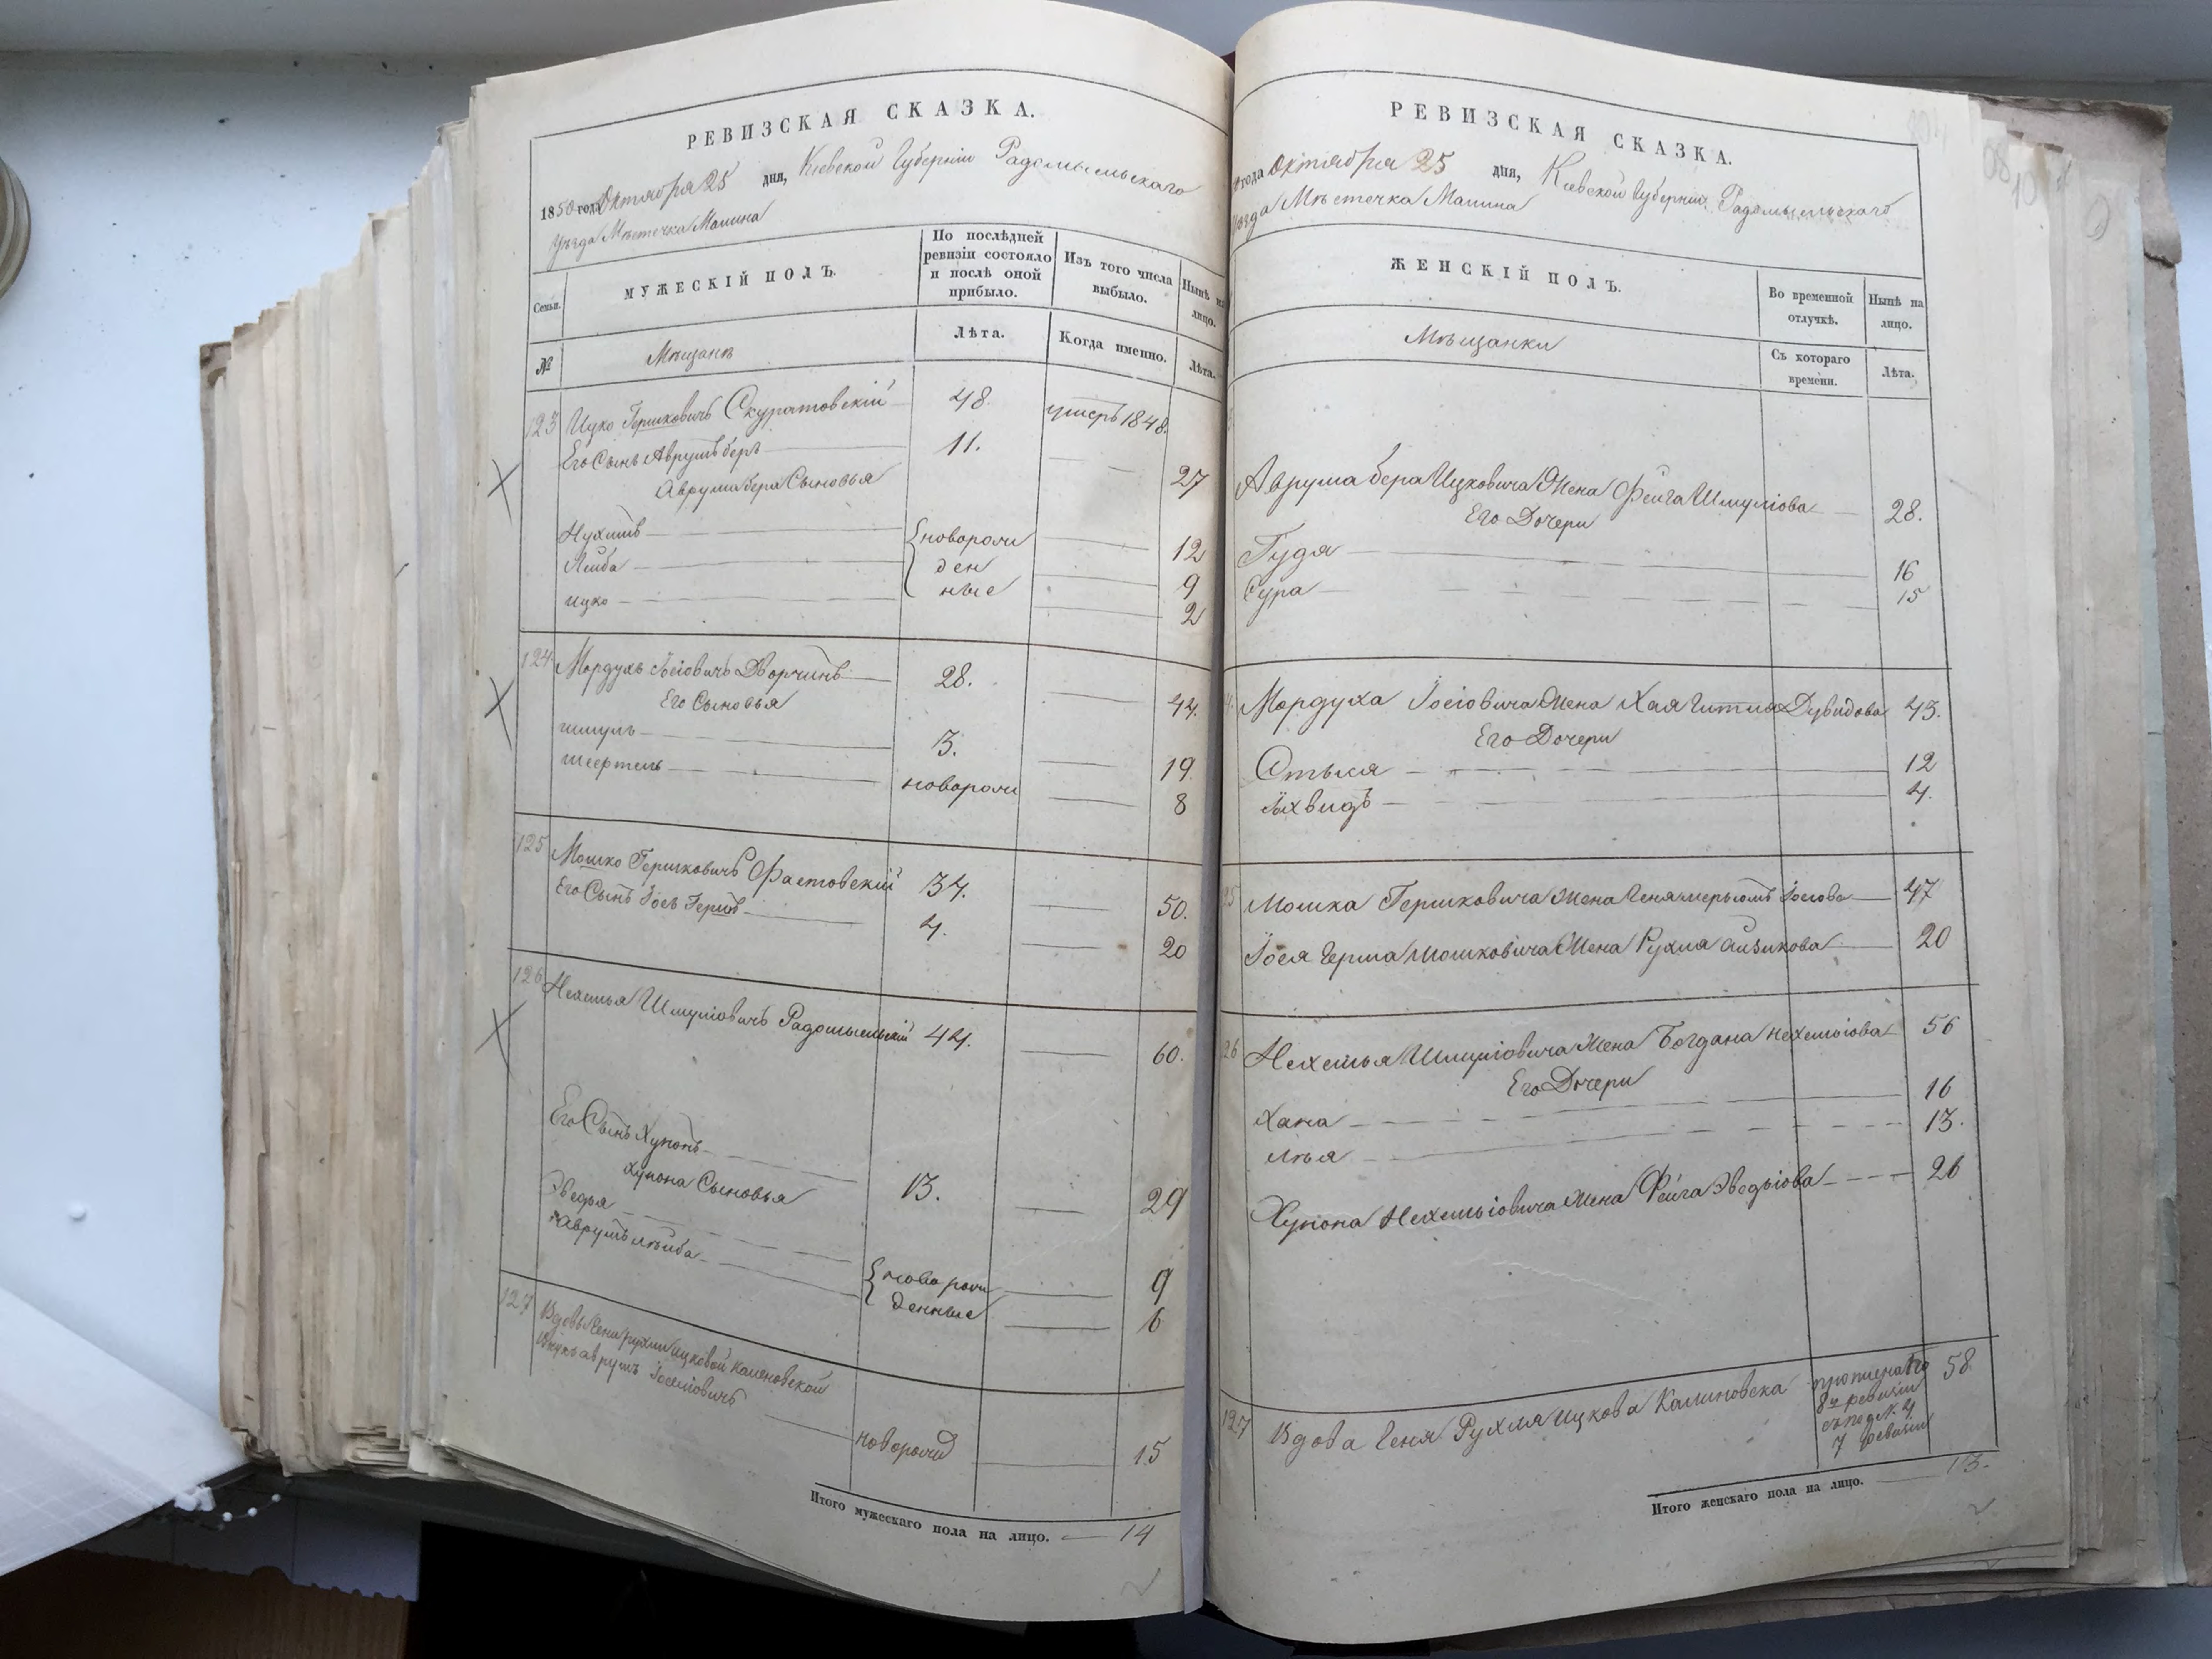 РЕВИЗСКАЯ СКАЗКА.
1850 года Октября 25 дня, Кіевской Губерніи Радомысльскаго
Уѣзда Мѣстечка Малина
Семьи.
МУЖЕСКІЙ ПОЛЪ.
По послѣдней
ревизіи состояло
и послѣ оной
прибыло.
Изъ того числа
выбыло.
Нынѣ на
лицо.
№
Мѣщанъ
Лѣта.
Когда именно.
Лѣта.
123 Ицко Гершковичъ Скуратовскій 48. умеръ 1848.
Его Сынъ Аврумъ беръ 11. 27
Аврума бера Сыновья
Нухимъ новорож 12
Лейба ден 9
Ицко ные 2
124 Мордухъ Іосіовичъ Дворчинъ 28. 44.
Его Сыновья
Шмуль 3. 19.
новорож 8
125 Мошко Гершковичъ Фастовскій 34. 50.
Его Сынъ Іось Гершъ 4. 20
126 Нехемья Шмуліовичъ Радомысльскій 44. 60.
Его Сынъ Хунонъ 13. 29
Хунона Сыновья
Эведья новорож 9
Аврумъ лейба денные 6
127 Вдовы Гени рухли Ицковой Калиновской
Внукъ аврумъ новорожд 15
Итого мужескаго пола на лицо. 14
РЕВИЗСКАЯ СКАЗКА.
года Октября 25 дня, Кіевской Губерніи Радомысльскаго
Уѣзда Мѣстечка Малина
ЖЕНСКІЙ ПОЛЪ.
Во временной
отлучкѣ.
Нынѣ на
лицо.
Мѣщанки
Съ котораго
времени.
Лѣта.
Аврума бера Ицковича Жена Фейга Шмуліова 28.
Его Дочери
Гудя 16
Сура 15
Мордуха Іосіовича Жена Хая Гитля Дувидова 43.
Его Дочери
Стыся 12
4.
25 Мошка Гершковича Жена Іосіова 47
Іося Герша Мошковича Жена Рухля Айзикова 20
26 Нехемья Шмуліовича Жена Богдана Нехеміова 56
Его Дочери
Хана 16
Лѣя 13.
Хунона Нехеміовича Жена Фейга Эведьіова 26
127 Вдова Геня Рухля Ицкова Калиновска 58
8й ревизіи
7 ревизіи
Итого женскаго пола на лицо. 13.